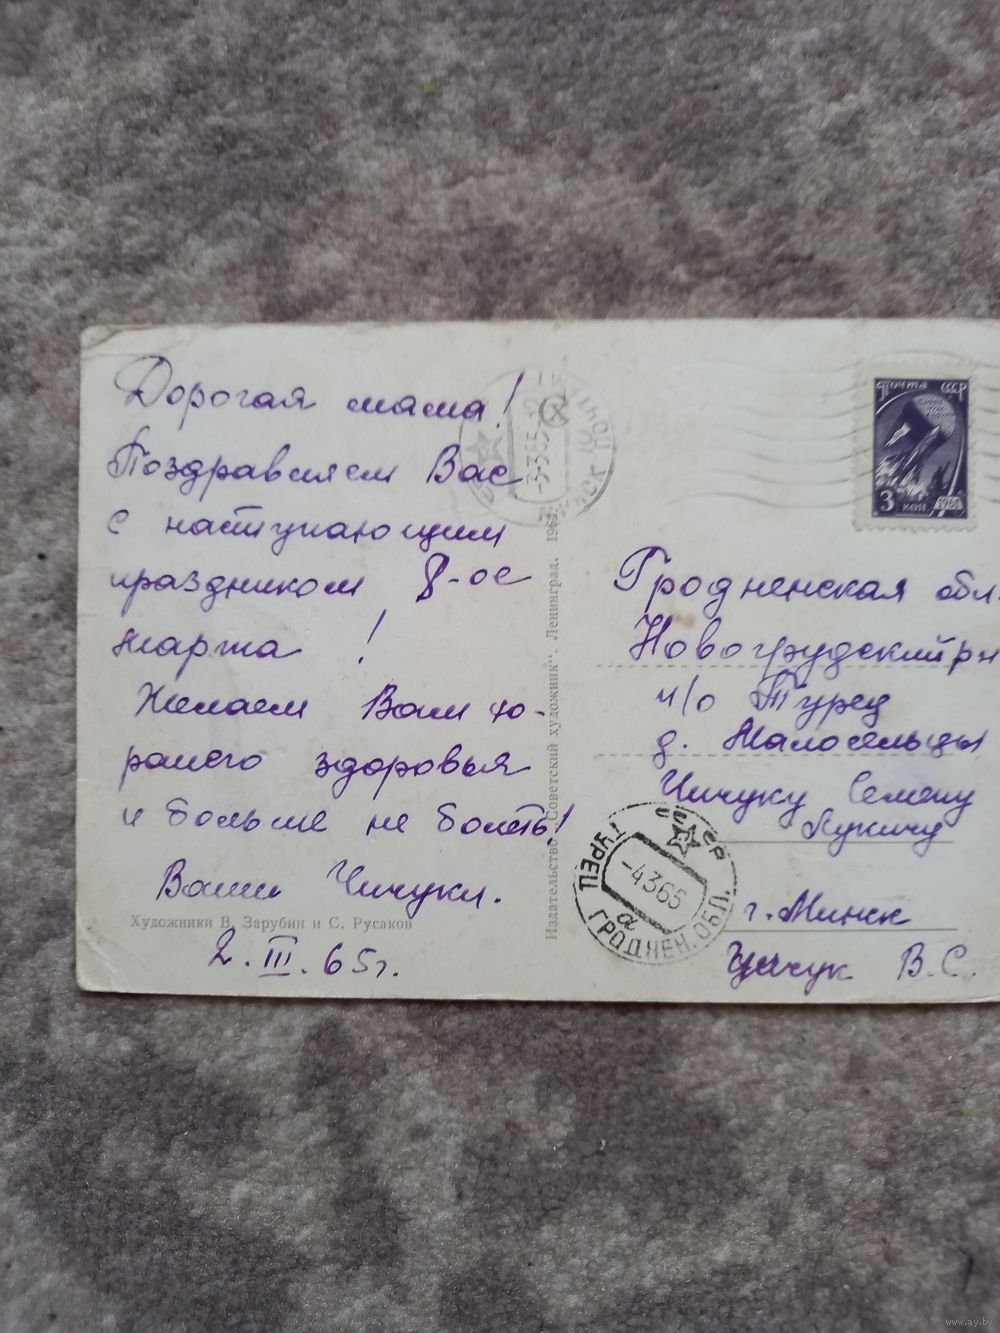 Дорогая мама!
Поздравляем Вас
с наступающим
праздником 8-ое
марта !
Желаем Вам хо-
рошего здоровья
и больше не болеть!
Ваши Чичуки.
Художники В. Зарубин и С. Русаков
2. III. 65 г.
Издательство „Советский художник“. Ленинград. 196
-3365
Почта СССР
3 коп
Гродненская обл.
Новогрудский рн
п/о Турец
д. Малосельцы
Чичуку Семену
Лукичу
ТУРЕЦ
ГРОДНЕН. ОБЛ.
-4365
г. Минск
Чичук В. С.
www.ay.by